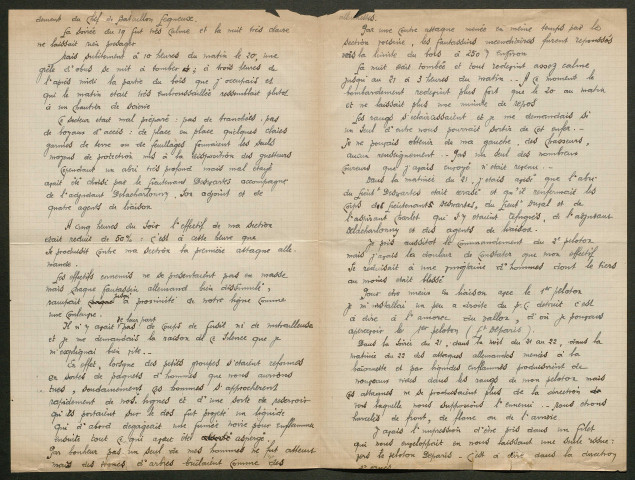 dement du Chef de Bataillon
La soirée du 19 fut très calme et la nuit très claire
ne laissait rien présager
mais subitement à 10 heures du matin le 20, une
grêle d'obus se mit à tomber à trois heures de
l'après midi la partie du bois que j'occupais et
qui le matin était très embroussaillée ressemblait plutôt
à un chantier de scierie
Ce secteur était mal préparé: pas de tranchées, pas
de boyaux d'accès: de place en place quelques claies
garnies de terre ou de feuillages formaient les seuls
moyens de protection mis à la disposition des guetteurs
Cependant un abri très profond mais mal étayé
avait été choisi par le lieutenant accompagné
de l'adjudant son adjoint et de
quatre agents de liaison
A cinq heures du soir l'effectif de ma section
était réduit de 50%. c'est à cette heure que
se produisit contre ma section la première attaque alle
mande.
Les effectifs ennemis ne se présentaient pas en masse
mais chaque fantassin allemand bien dissimulé,
rampait à proximité de notre ligne comme
une couleuvre.
de leur part
Il n'y avait pas de coups de fusil ni de mitrailleuse
et je me demandais la raison de ce silence que je
m'expliquai bien vite...
En effet, lorsque des petits groupes s'étaient reformés
en sortes de paquets d'hommes que nous avions
très, soudainement ces hommes s'approchèrent
rapidement de nos lignes et d'une sorte de réservoir
qu'ils portaient sur le dos fut projeté un liquide
qui d'abord dégageait une fumée noire pour enflammer
ensuite tout ce qui avait été aspergé.
Par bonheur pas un seul de mes hommes ne fut atteint
mais des troncs d'arbres brûlaient comme des
allumettes.
Par une contre attaque menée en même temps par la
section voisine, les fantassins incendiaires furent repoussés
vers la limite du bois à 250 m environ
La nuit était tombée et tout redevint assez calme
jusqu'au 21 à 3 heures du matin... A ce moment le
bombardement redevint plus fort que le 20 au matin
et ne laissait plus une minute de repos
Les rangs s'éclaircissaient et je me demandais si
un seul d'entre nous pourrait sortir de cet enfer..
Je ne pouvais obtenir de ma gauche, des chasseurs,
aucun renseignement.. Pas un seul des nombreux
coureurs que j'avais envoyés n'était revenu...
Dans la matinée du 21, j'étais avisé que l'abri
du Lieut était écrasé et qu'il renfermait les
corps des lieutenants du Lieut et de
l'aspirant qui s'y étaient réfugiés, de l'adjudant
et des agents de liaison.
Je pris aussitôt le commandement du 2e peloton
mais j'avais la douleur de constater que mon effectif
se réduisait à une quinzaine d'hommes dont le tiers
au moins était blessé
Pour être mieux en liaison avec le 1er peloton
je m'installai un peu à droite du P.C détruit c'est
à dire à l'amorce du vallon, d'où je pouvais
apercevoir le 1er peloton
Dans la soirée du 21, dans la nuit du 21 au 22, dans la
matinée du 22 des attaques allemandes menées à la
baïonnette et par liquides enflammés produisirent de
nouveaux vides dans les rangs de mon peloton mais
ces attaques ne se produisaient plus de la direction
vers laquelle nous supposions l'ennemi.. nous étions
harcelés de front, de flanc ou de l'arrière
J'avais l'impression d'être pris dans un filet
qui nous enveloppait en nous laissant une seule issue:
vers le peloton c'est à dire dans la direction